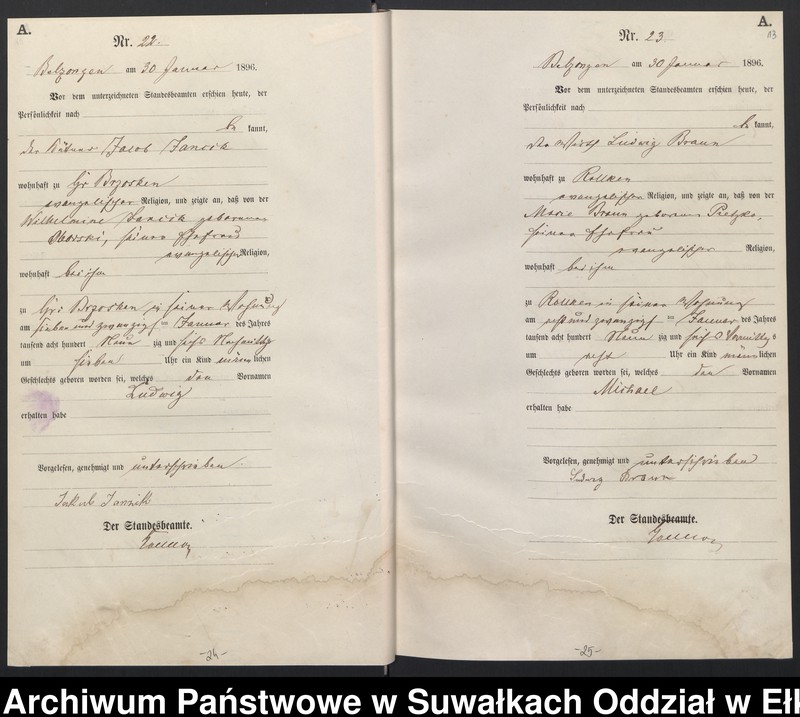 A.
Nr. 22.
Belzongen am 30 Januar 1896.
Vor dem unterzeichneten Standesbeamten erschien heute, der
Persönlichkeit nach
be kannt,
der Käthner Jacob Jancik
wohnhaft zu Gr Brzosken
evangelischer Religion, und zeigte an, daß von der
Wilhelmine Jancik geborenen
seiner Ehefrau
evangelischer Religion,
wohnhaft bei ihm
zu Gr. Brzosken in seiner Wohnung
am sieben und zwanzigsten Januar des Jahres
tausend acht hundert Neun zig und sechs Nachmittags
um sieben Uhr ein Kind männ lichen
Geschlechts geboren worden sei, welches den Vornamen
Ludwig
erhalten habe
Vorgelesen, genehmigt und unterschrieben
Jakob Janzik
Der Standesbeamte.
-24-
A.
13
Nr. 23.
Belzongen am 30 Januar 1896.
Vor dem unterzeichneten Standesbeamten erschien heute, der
Persönlichkeit nach
be kannt,
der Wirth Ludwig Braun
wohnhaft zu Rollken
evangelischer Religion, und zeigte an, daß von der
Marie Braun geborene Pietzko,
seiner Ehefrau
evangelischer Religion,
wohnhaft bei ihm
zu Rollken in seiner Wohnung
am acht und zwanzigsten Januar des Jahres
tausend acht hundert Neun zig und sechs Vormittags
um acht Uhr ein Kind männ lichen
Geschlechts geboren worden sei, welches den Vornamen
Michael
erhalten habe
Vorgelesen, genehmigt und unterschrieben
Ludwig Braun
Der Standesbeamte.
-25-
Archiwum Państwowe w Suwałkach Oddział w Ełk